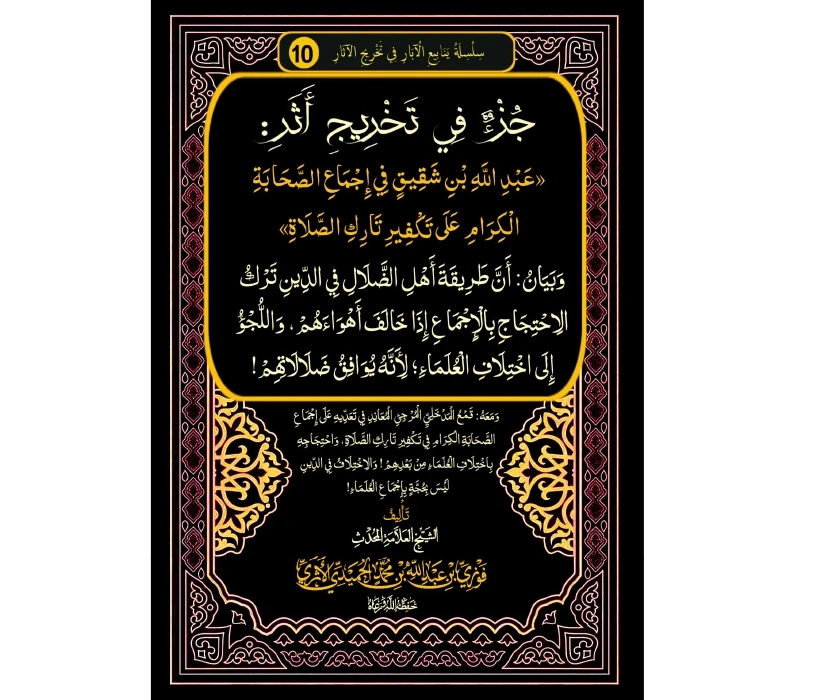 سِلْسِلَةُ يَنَابِيعِ الْآبَارِ فِي تَخْرِيجِ الْآثَارِ 10
جُزْءٌ فِي تَخْرِيجِ أَثَرِ:
«عَبْدِ اللَّهِ بْنِ شَقِيقٍ فِي إِجْمَاعِ الصَّحَابَةِ
الْكِرَامِ عَلَى تَكْفِيرِ تَارِكِ الصَّلَاةِ»
وَبَيَانُ: أَنَّ طَرِيقَةَ أَهْلِ الضَّلَالِ فِي الدِّينِ تَرْكُ
الِاحْتِجَاجِ بِالْإِجْمَاعِ إِذَا خَالَفَ أَهْوَاءَهُمْ، وَاللُّجُوْءُ
إِلَى اخْتِلَافِ الْعُلَمَاءِ؛ لِأَنَّهُ يُوَافِقُ ضَلَالَاتِهِمْ!
وَمَعَهُ: قَمْعُ الْمَدْخَلِيِّ الْمُرْجِئِ الْمُعَانِدِ فِي تَعَدِّيهِ عَلَى إِجْمَاعِ
الصَّحَابَةِ الْكِرَامِ فِي تَكْفِيرِ تَارِكِ الصَّلَاةِ، وَاحْتِجَاجِهِ
بِاخْتِلَافِ الْعُلَمَاءِ مِنْ بَعْدِهِمْ! وَالِاخْتِلَافُ فِي الدِّينِ
لَيْسَ بِحُجَّةٍ بِإِجْمَاعِ الْعُلَمَاءِ!
تَأْلِيفُ
الشَّيْخِ الْعَلَّامَةِ الْمُحَدِّثِ
فَوْزِيِّ بْنِ عَبْدِ اللَّهِ بْنِ مُحَمَّدٍ الْحُمَيْدِيِّ الْأَثَرِيِّ
حَفِظَهُ اللَّهُ وَرَعَاهُ